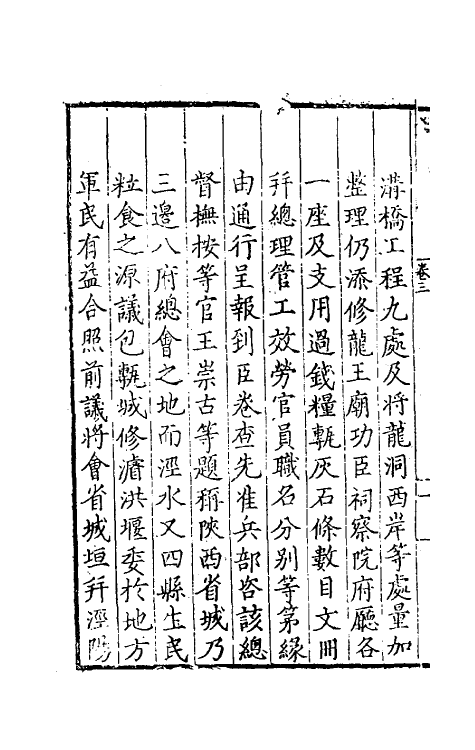 溝橋工程九處及將龍洞西岸等處量加
整理仍添修龍王廟功臣祠察院府廳各
一座及支用過錢糧甎灰石條數目文冊
并總理管工效勞官員職名分別等第緣
由通行呈報到臣卷查先准兵部咨該總
督撫按等官王崇古等題稱陝西省城乃
三邊八府總會之地而涇水又四縣生民
粒食之源議包甎城修濬洪堰委於地方
軍民有益合照前議將會省城垣并涇陽
卷三